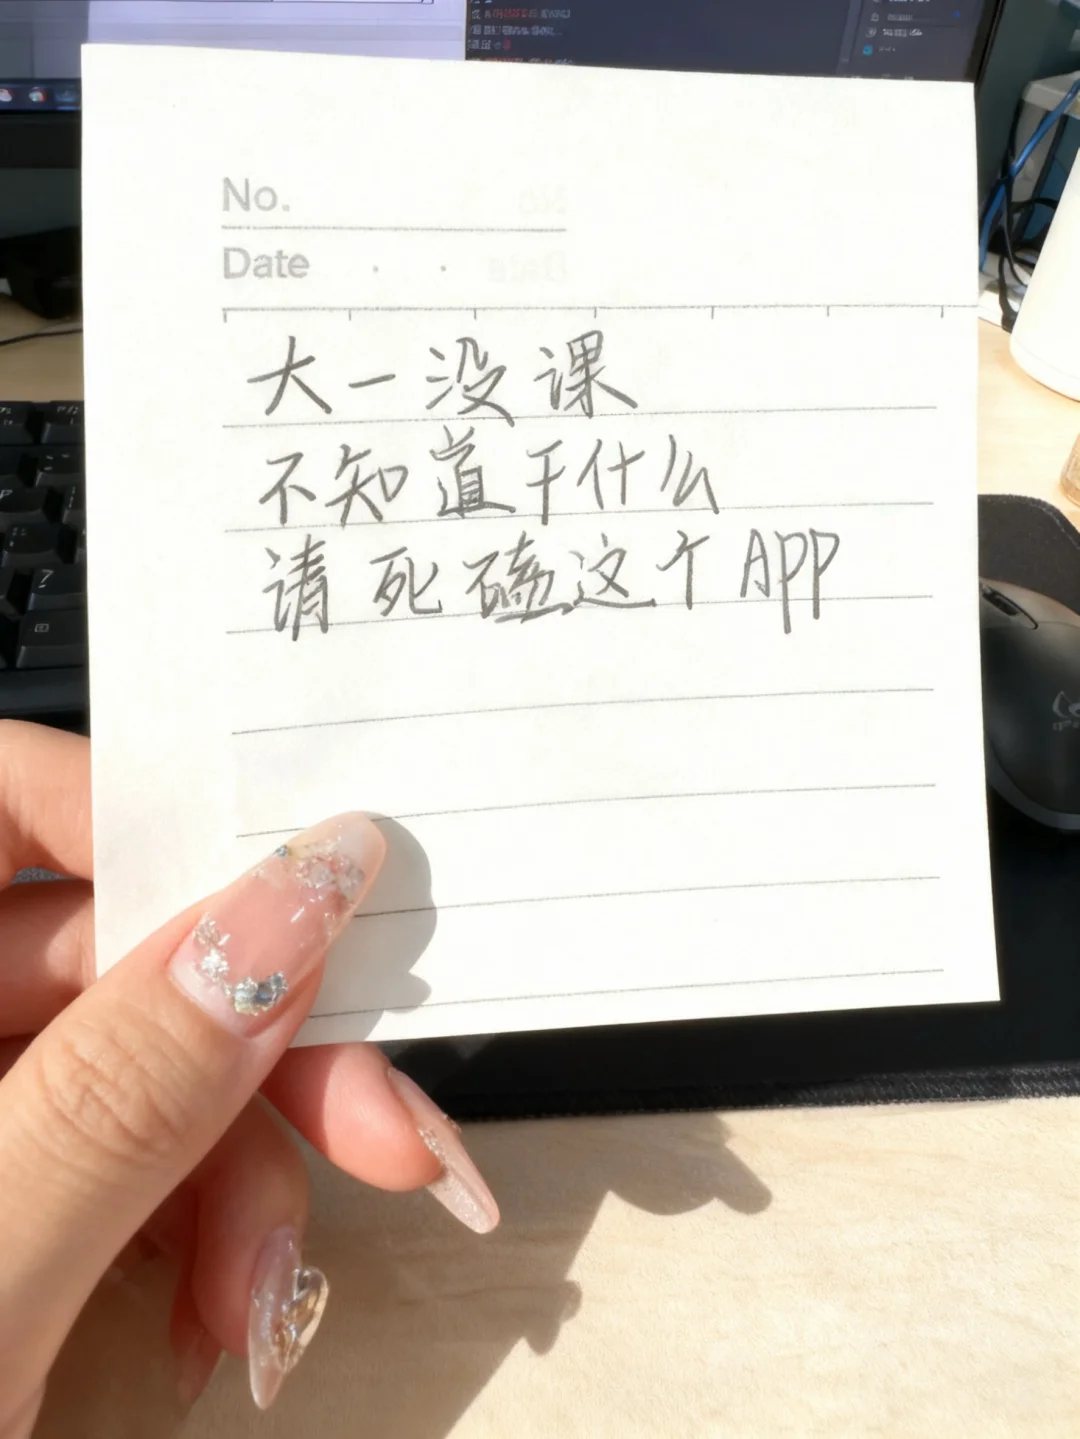 No.
Date
大一没课
不知道干什么
请死磕这个APP